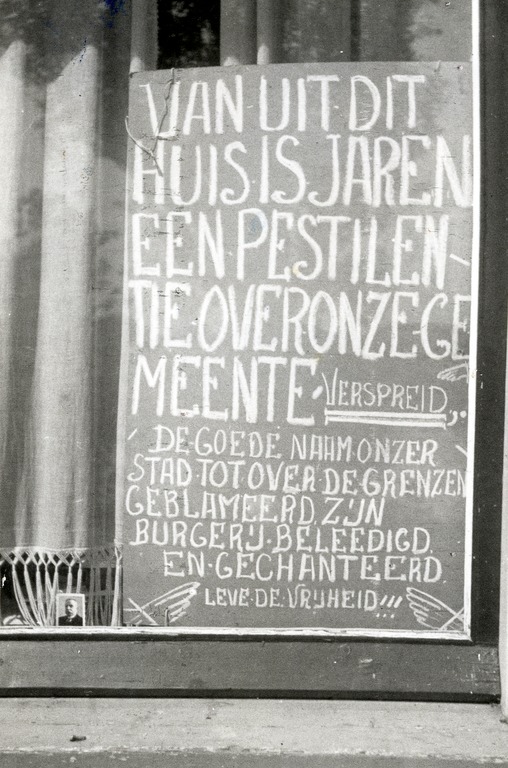 VAN UIT DIT
HUIS IS JAREN
EEN PESTILEN-
TIE·OVER ONZE·GE
MEENTE·VERSPREID,
DE·GOEDE NAAM·ONZER
STAD TOT OVER·DE GRENZEN
GEBLAMEERD, ZIJN
BURGERIJ·BELEEDIGD.
EN·GECHANTEERD.
LEVE·DE·VRIJHEID!!!